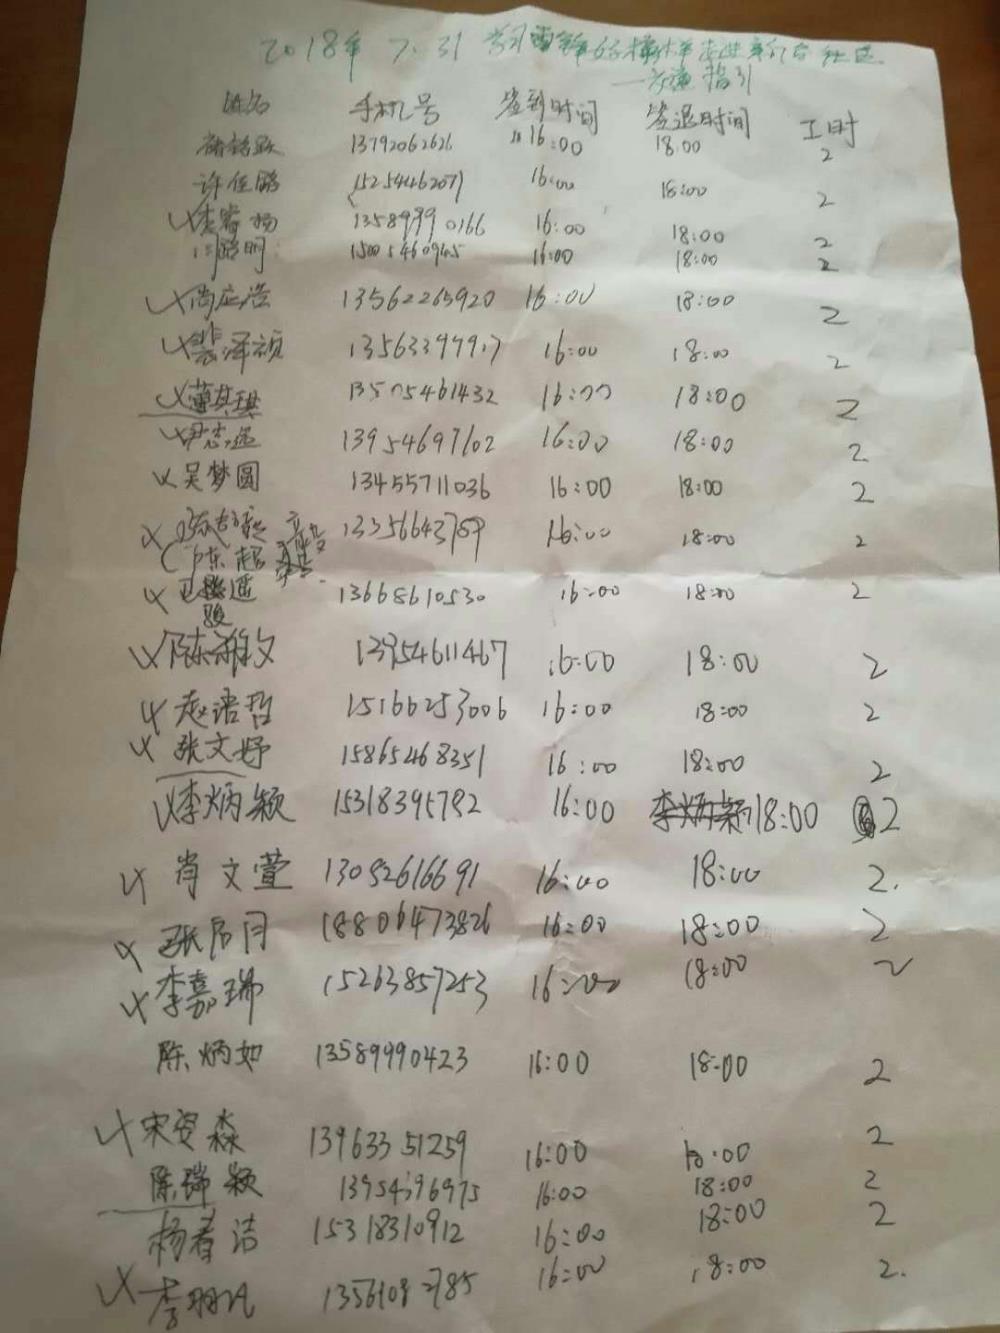 2018年 7.31 学习雷锋好榜样 走进 社区
指引
姓名 手机号 签到时间 签退时间 工时
13792062626 16:00 18:00 2
许任鹏 15254462071 16:00 18:00 2
李睿杨 13589990166 16:00 18:00 2
闫照明 16:00 18:00 2
尚应浩 13562265920 16:00 18:00 2
裴泽祯 16:00 18:00 2
薄其琪 13505461432 16:00 18:00 2
尹志远 13954697602 16:00 18:00 2
吴梦圆 13455711036 16:00 18:00 2
16:00 18:00 2
陈超
13668610530 16:00 18:00 2
骏
陈雅文 13954611467 16:00 18:00 2
赵语哲 15166253006 16:00 18:00 2
张文妤 15865468351 16:00 18:00 2
李炳颖 15318395782 16:00 李炳颖 18:00 2
肖文萱 13082616691 16:00 18:00 2.
张 18806473826 16:00 18:00 2
李嘉瑞 15263857253 16:00 18:00 2
陈炳如 13589990423 16:00 18:00 2
宋姿淼 13963351259 16:00 2
陈瑞颖 13954396975 16:00 18:00 2
杨春洁 15318310912 16:00 18:00 2
李 16:00 18:00 2.